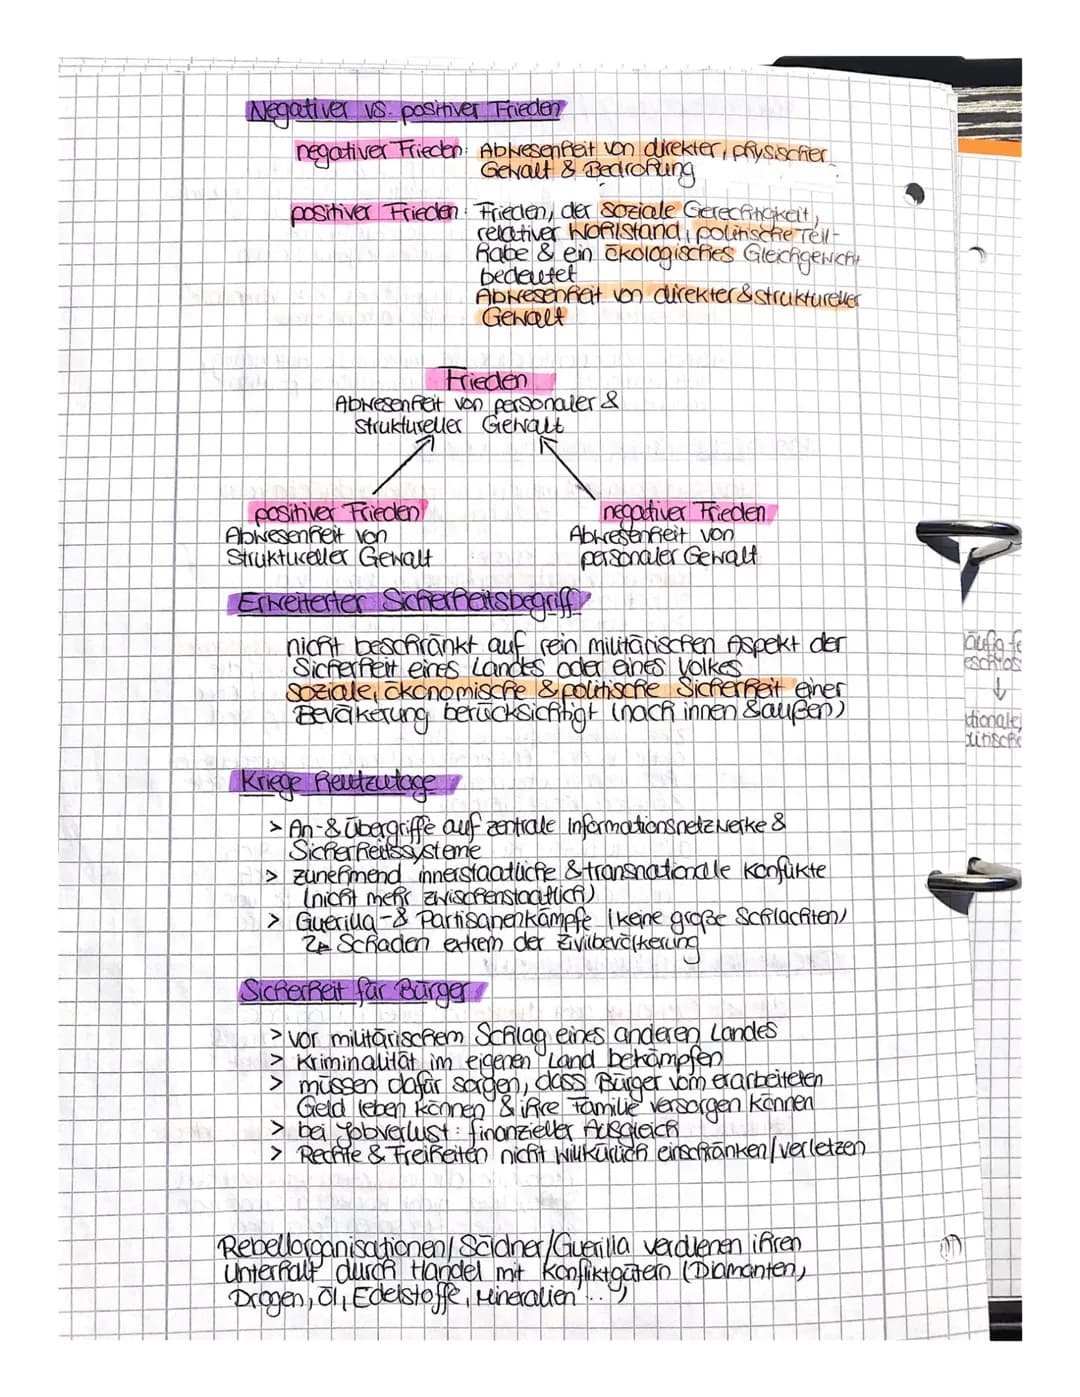 Negativer vs. positiver Frieden
negativer Frieden: Abwesenheit von direkter, physischer
Gewalt & Bedrohung
positiver Frieden: Frieden, der soziale Gerechtigkeit,
relativer Wohlstand, politische Teil-
habe & ein ökologisches Gleichgewicht
bedeutet
Abwesenheit von direkter & struktureller
Gewalt
Frieden
Abwesenheit von personaler &
struktureller Gewalt
positiver Frieden
Abwesenheit von
struktureller Gewalt
negativer Frieden
Abwesenheit von
personaler Gewalt
Erweiterter Sicherheitsbegriff
nicht beschränkt auf rein militärischen Aspekt der
Sicherheit eines Landes oder eines Volkes
soziale, ökonomische & politische Sicherheit einer
Bevölkerung berücksichtigt (nach innen & außen)
Kriege heutzutage
> An- & Übergriffe auf zentrale Informationsnetzwerke &
Sicherheitssysteme
> zunehmend innerstaatliche & transnationale Konflikte
(nicht mehr zwischenstaatlich)
> Guerilla- & Partisanenkämpfe (keine große Schlachten)
↳ Schaden extrem der Zivilbevölkerung
Sicherheit für Bürger
> vor militärischem Schlag eines anderen Landes
> Kriminalität im eigenen Land bekämpfen
> müssen dafür sorgen, dass Bürger vom erarbeiteten
Geld leben können & ihre Familie versorgen können
> bei Jobverlust: finanzieller Ausgleich
> Rechte & Freiheiten nicht willkürlich einschränken/verletzen
Rebellorganisationen/Söldner/Guerilla verdienen ihren
Unterhalt durch Handel mit Konfliktgütern (Diamanten,
Drogen, Öl, Edelstoffe, Mineralien...)
↓